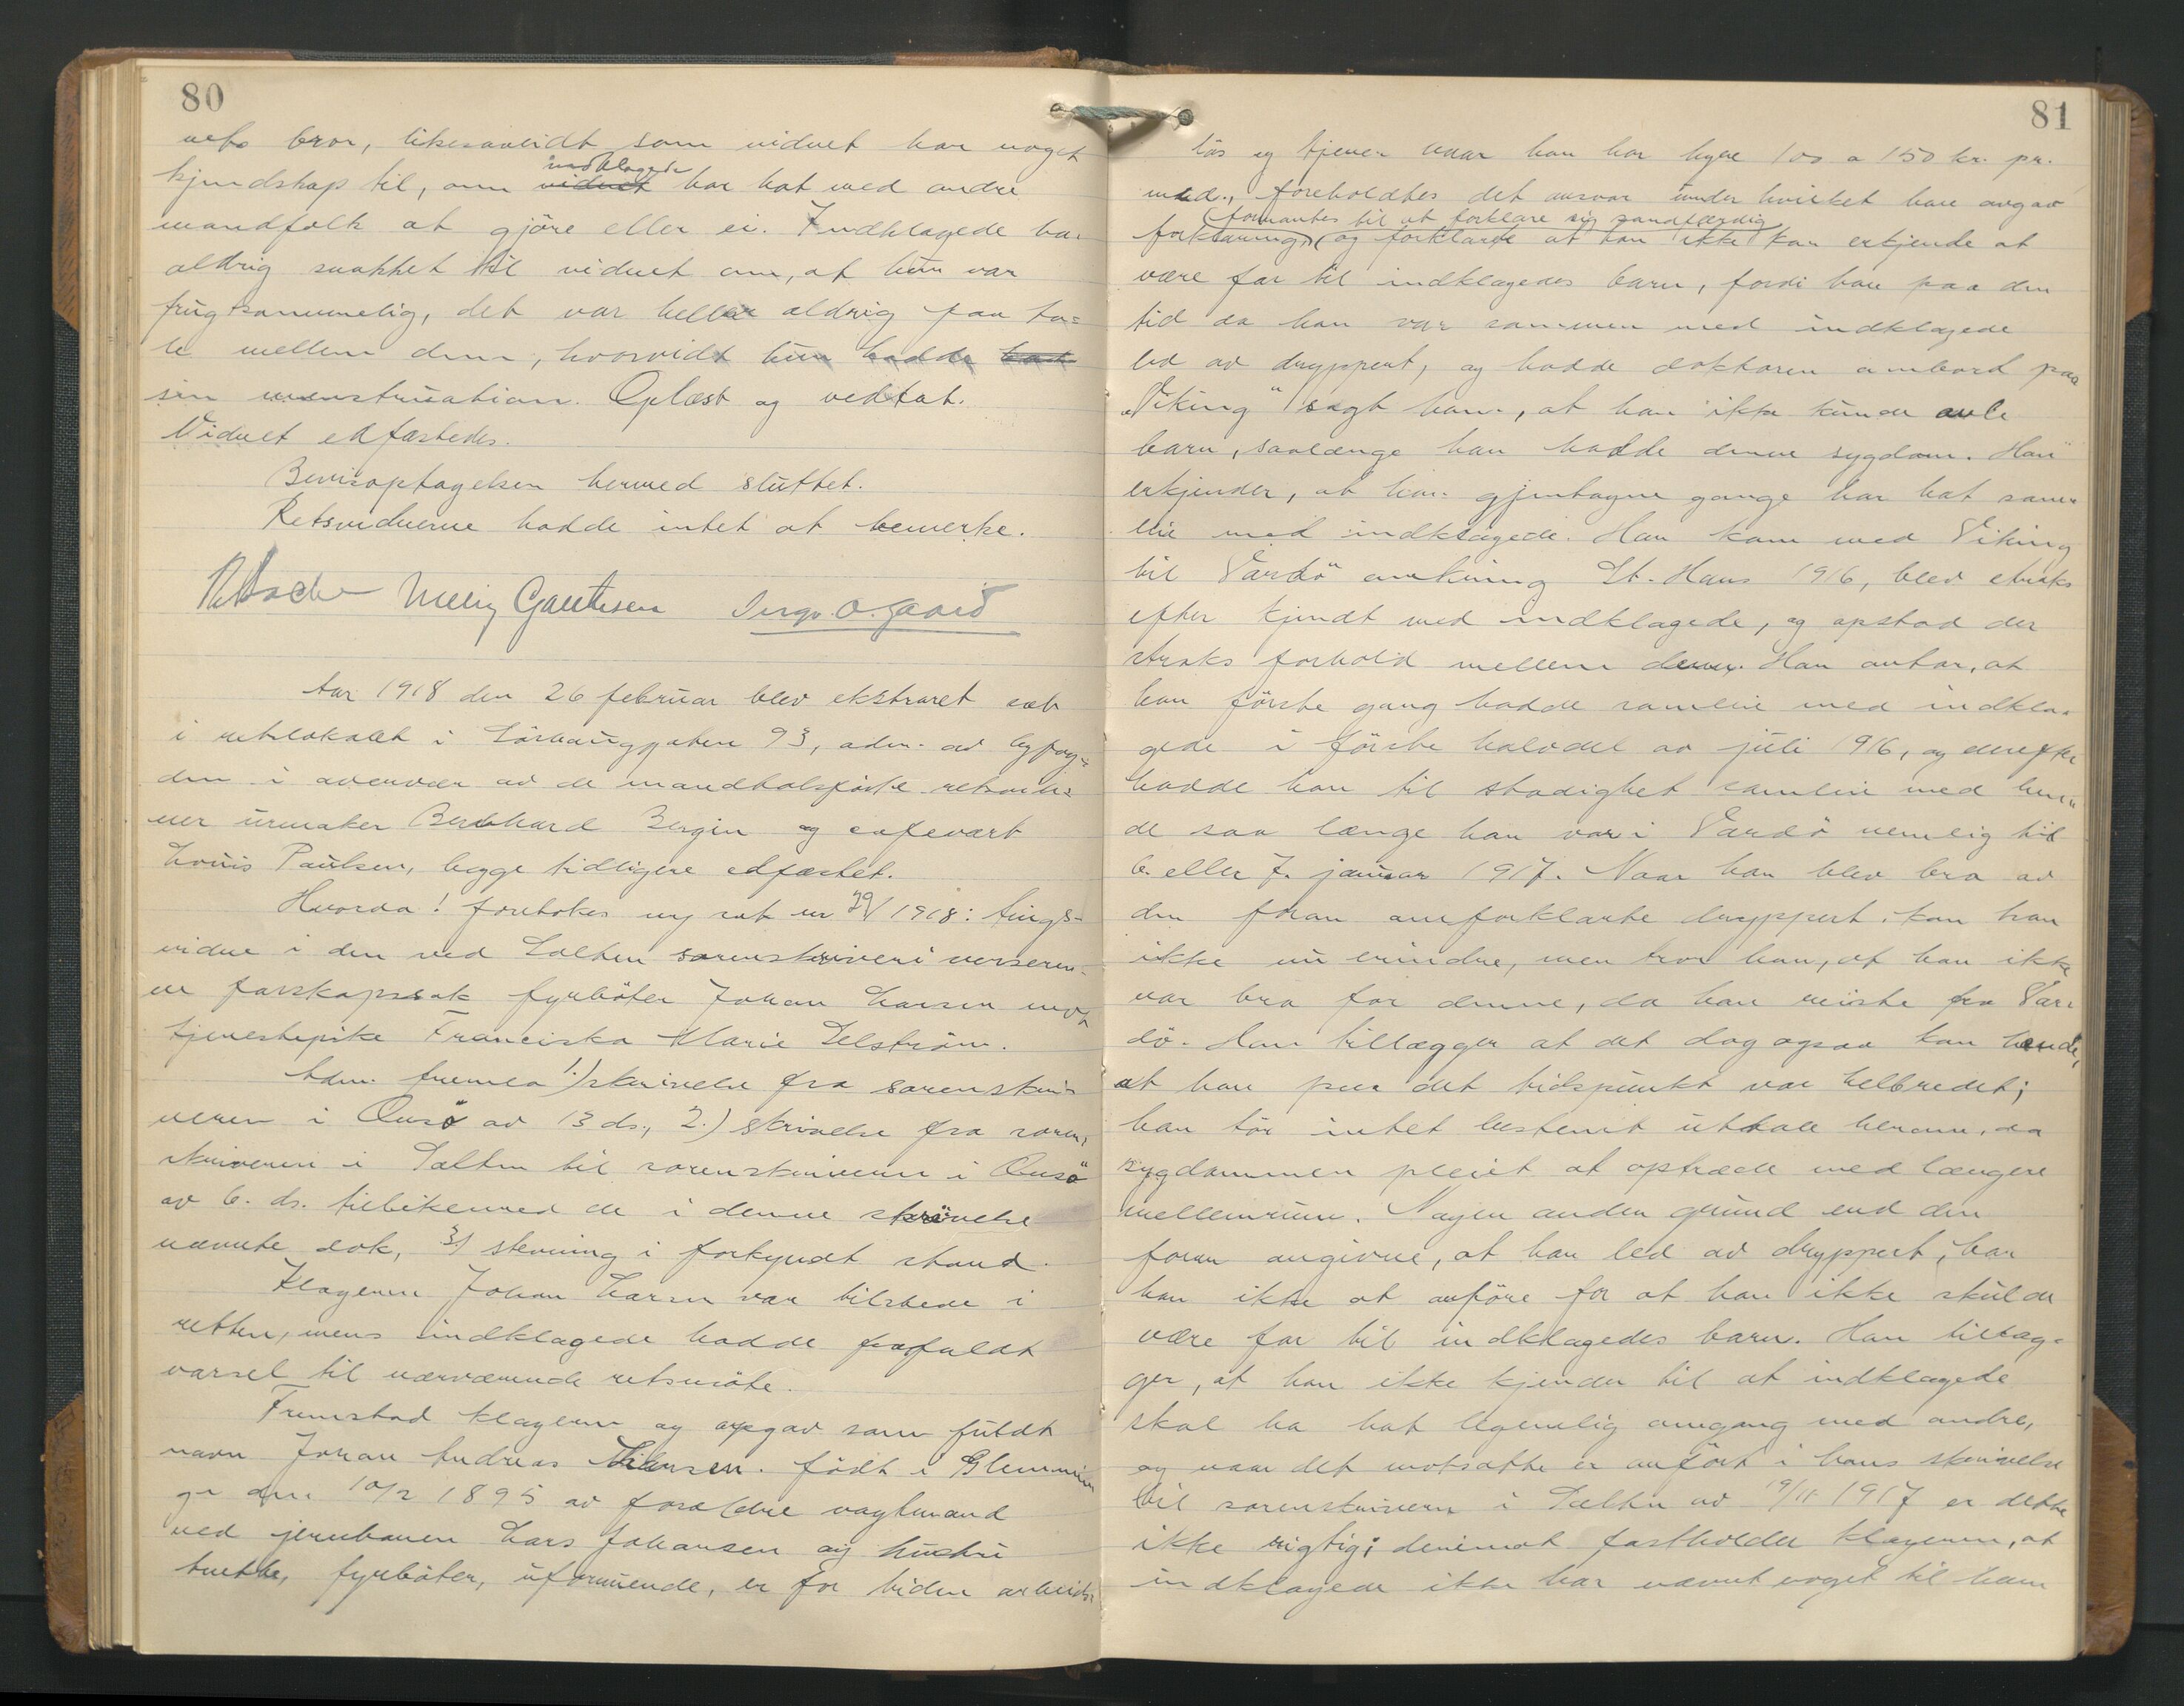 80
bror, likesaavidt som vidnet har noget
kjendskap til, om indklagede
vidnet har hat med andre
mandfolk at gjöre eller ei. Indklagede har
aldrig snakket til vidnet om, at hun var
frugtsommelig, det var heller aldrig paa ta=
le mellem dem, hvorvidt hun hadde hat
sin menstruation. Oplæst og vedtat.
Vidnet edfæstedes.
Bevisoptagelsen hermed sluttet.
Retsvidnerne hadde intet at bemerke.
Gautesen
Aar 1918 den 26 februar blev ekstraret sat
i retslokalet i 93, adm. av byfog=
den i overvær av de mandtalsförte retsvid=
ner urmaker Bernhard Bergin og cafevært
Louis Paulsen, begge tidligere edfæstet.
Hvorda! foretokes ny sak nr 29/1918: tings=
vidne i den ved Salten sorenskriveri verseren=
de farskapssak fyrböter Johan Larsen mot
tjenestepike Franciska Marie Selström.
Adm. fremla 1.) skrivelse fra sorenskri=
veren i Onsö av 13 ds., 2.) skrivelse fra soren=
skriveren i Salten til sorenskriveren i Onsö
av 6. ds. tilbikemed de i denne skrivelse
nævnte dok, 3.) stevning i forkyndt stand.
Klageren Johan Larsen var tilstede i
retten, mens indklagede hadde frafaldt
varsel til nærværende retsmöte.
Fremstod klageren og opgav som fuldt
navn Johan Andreas Larsen. födt i Glemmin
ge den 10/2 1895 av forældre vagtmand
ved jernbanen Lars Johansen og hustru
fyrböter, uformuende, er for tiden arbeids=
81
lös og tjener naar han har hyre 100 a 150 kr. pr.
mnd., foreholdtes det ansvar under hvilket han avgav
formantes til at forklare sig sandfærdig
forklaring, og forklarte at han ikke kan erkjende at
være far til indklagedes barn, fordi han paa den
tid da han var sammen med indklagede
led av dryppert, og hadde doktoren ombord paa
„Viking" sagt ham, at han ikke kunde avle
barn, saalænge han hadde denne sygdom. Han
erkjender, at han gjentagne gange har hat sam=
leie med indklagede. Han kom med Viking
til Vardö omkring St. Hans 1916, blev straks
efter kjendt med indklagede, og opstod der
straks forhold mellem dem. Han antar, at
han förste gang hadde samleie med indkla=
gede i förste halvdel av juli 1916, og derefter
hadde han til stadighet samleie med hen=
de saa længe han var i Vardö nemlig til
6. eller 7. januar 1917. Naar han blev bra av
den foran omforklarte dryppert, kan han
ikke nu erindre, men tror han, at han ikke
var bra for denne, da han reiste fra Var=
dö. Han tillægger at det dog ogsaa kan hænde,
at han paa det tidspunkt var helbredet;
han tör intet bestemt uttale herom, da
sygdommen pleiet at optræde med længere
mellemrum. Nogen anden grund end den
foran angivne, at han led av dryppert, har
han ikke at anföre for at han ikke skulde
være far til indklagedes barn. Han tillæg=
ger, at han ikke kjender til at indklagede
skal ha hat legemlig omgang med andre,
og naar det motsatte er anfört i hans skrivelse
til sorenskriveren i Salten av 19/11 1917 er dette
ikke rigtig; derimot fastholder klageren, at
indklagede ikke har nævnt noget til ham